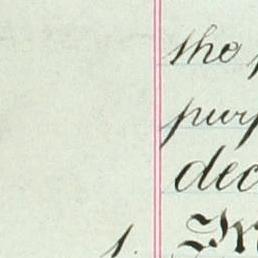 the p
purp
dec
1.